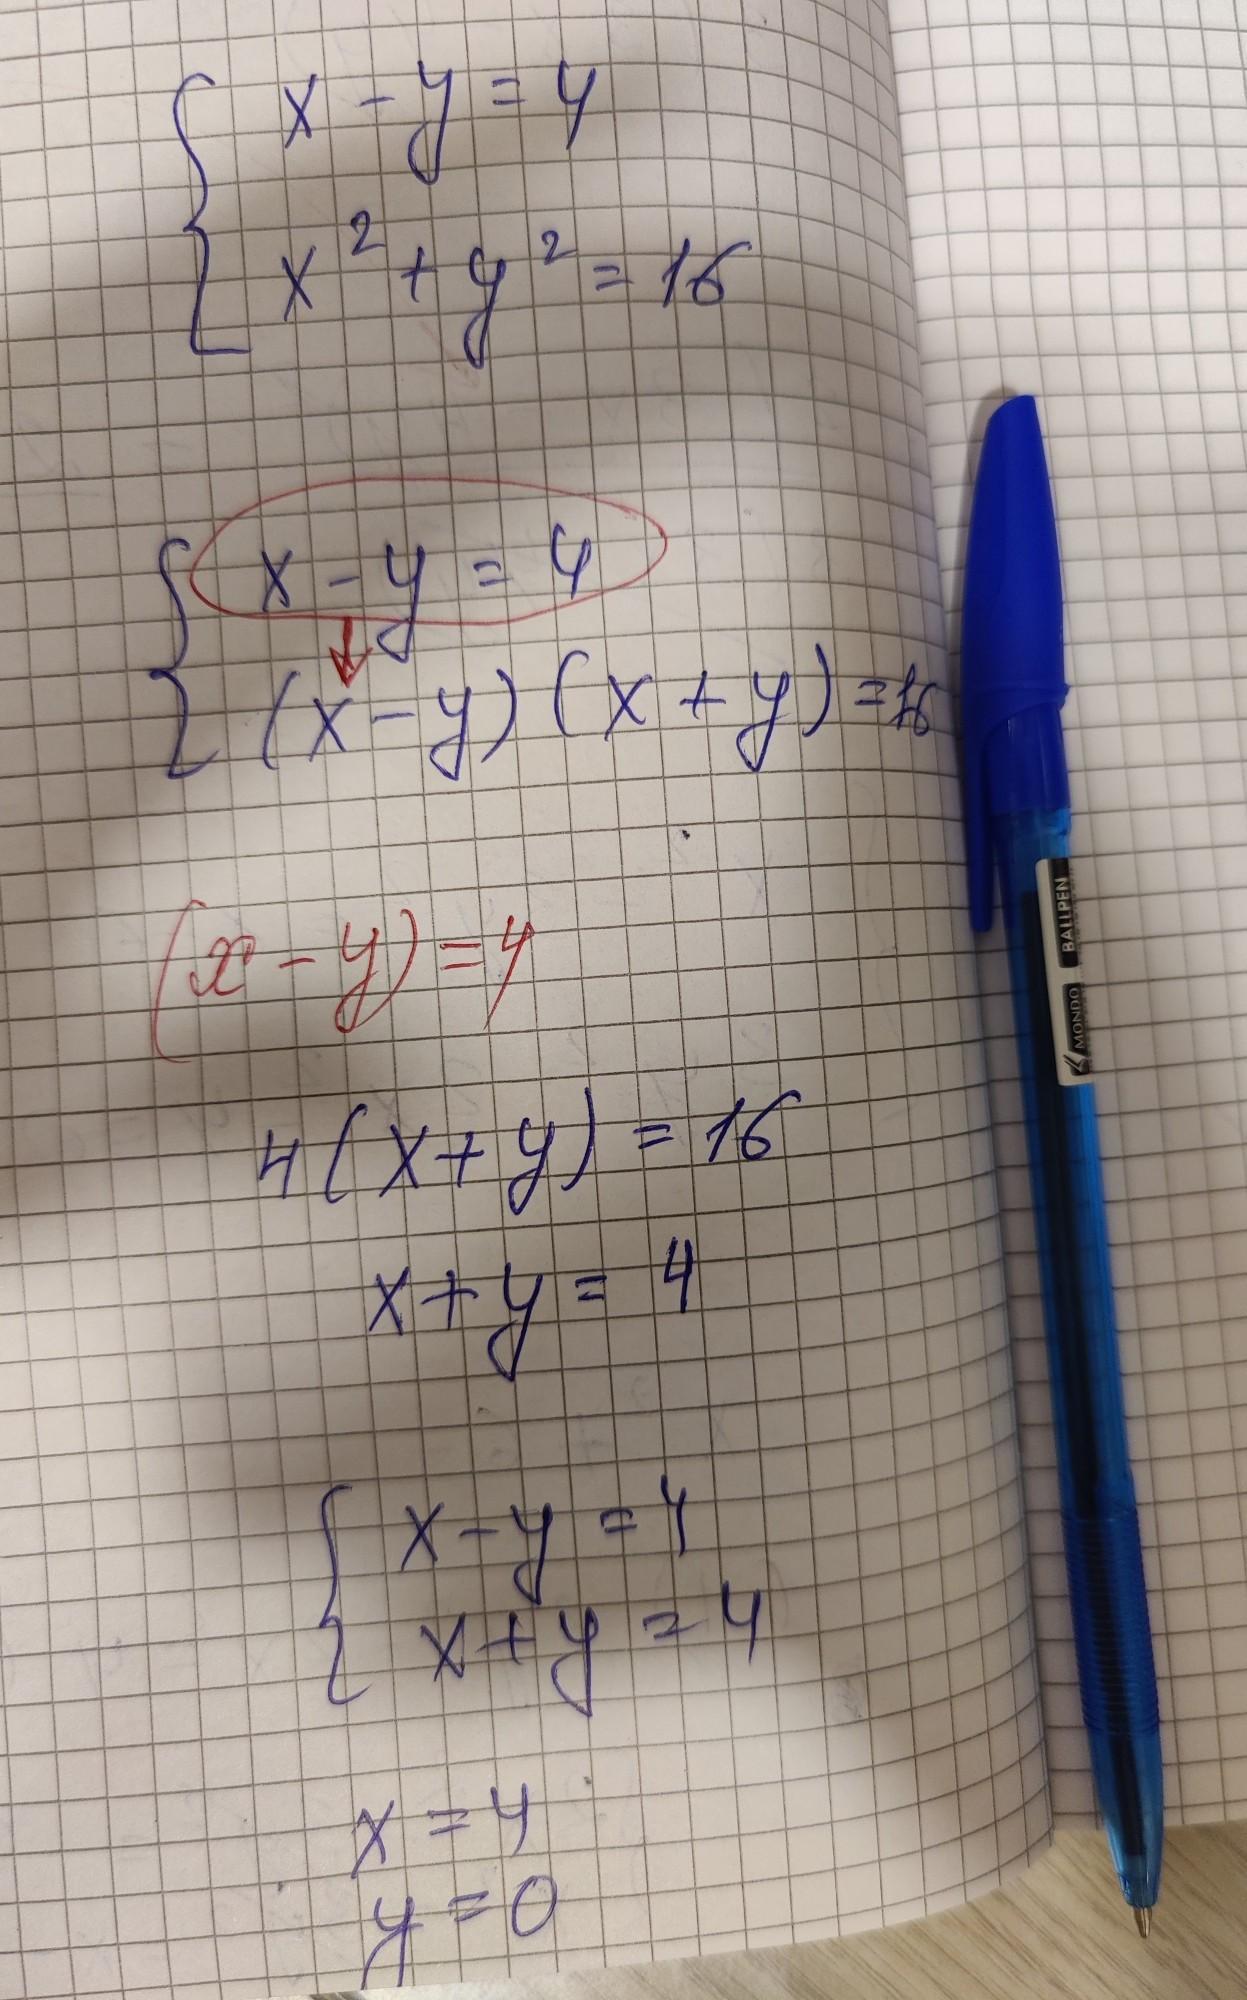 x - y = 4
x² + y² = 16
x - y = 4
(x - y) (x + y) = 16
(x - y) = 4
4 (x + y) = 16
x + y = 4
x - y = 4
x + y = 4
x = 4
y = 0
MONDO BALLPEN